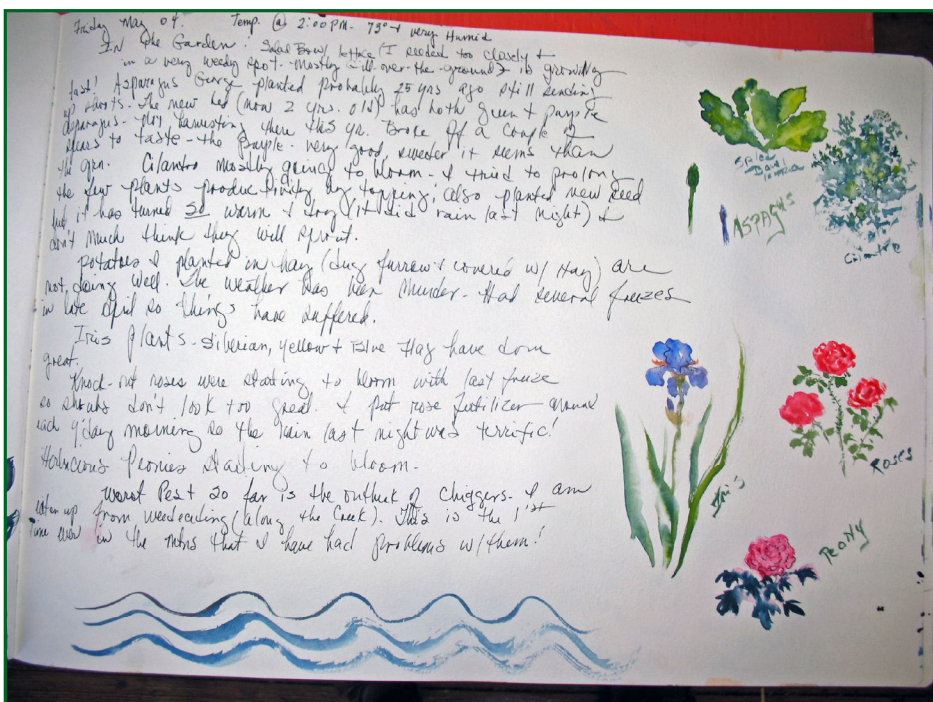 Friday May 04. Temp. @ 2:00 PM. 73° + very Humid
In the Garden: Salad Bowl lettuce (I seeded too closely +
in a very weedy spot - mostly all-over-the-ground) is growing
fast! Asparagus George planted probably 25 yrs ago still sending
up shoots. The new bed (now 2 yrs. old) has both green + purple
asparagus - harvesting there this yr. Broke off a couple of
spears to taste - the purple - very good, sweeter it seems than
the grn. Cilantro mostly going to bloom - I tried to prolong
the few plants productivity by topping, also planted new seed
but it has turned so warm + dry (it did rain last night) I
don't much think they will sprout.
potatoes I planted in hay (dug furrow + covered w/ Hay) are
not doing well. The weather has been murder - Had several freezes
in late April so things have suffered.
Iris plants - Siberian, yellow + Blue Flag have done
great.
Knock-out roses were starting to bloom with last freeze
so shrubs don't look too great. I put rose fertilizer around
each y'day morning so the rain last night was terrific!
Herbacious Peonies starting to bloom.
Worst Pest so far is the outbreak of chiggers - I am
eaten up from weedeating (along the Creek). This is the 1st
time ever in the mtns that I have had problems w/ them!
Salad
Bowl
Cilantro
Iris
Roses
Peony